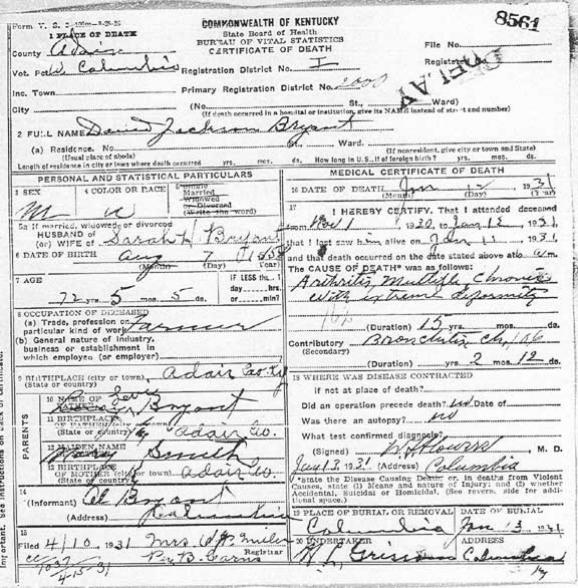 Form V. S.
COMMONWEALTH OF KENTUCKY
8561
1 PLACE OF DEATH
State Board of Health
BUREAU OF VITAL STATISTICS
CERTIFICATE OF DEATH
County Adair
File No.
Vot. Pct. W. Columbia Registration District No. I
Registered
DELAY
Inc. Town Primary Registration District No.
City (No. St., Ward)
(If death occurred in a hospital or institution, give its NAME instead of street and number)
2 FULL NAME David Jackson Bryant
(a) Residence. No. St. Ward.
(Usual place of abode) (If nonresident, give city or town and State)
Length of residence in city or town where death occurred yrs. mos. ds. How long in U.S., if of foreign birth? yrs. mos. ds.
PERSONAL AND STATISTICAL PARTICULARS
3 SEX 4 COLOR OR RACE 5 Single
Married
Widowed
or Divorced
(Write the word)
M W
5a If married, widowed, or divorced
HUSBAND OF
(or) WIFE OF Sarah H Bryant
6 DATE OF BIRTH Aug 7 1858
(Month) (Day) (Year)
7 AGE IF LESS than 1
day hrs.
72 yrs. 5 mos. 5 ds. or min.
8 OCCUPATION OF DECEASED
(a) Trade, profession or
particular kind of work Farmer
(b) General nature of industry,
business or establishment in
which employed (or employer)
9 BIRTHPLACE (city or town) Adair Co. Ky
(State or country)
PARENTS
10 NAME OF
FATHER Bryant
11 BIRTHPLACE
OF FATHER (city or town)
(State or country) Ky Adair Co.
12 MAIDEN NAME
OF MOTHER Mary Smith
13 BIRTHPLACE
OF MOTHER (city or town) Adair Co.
(State or country)
14
(Informant) Al Bryant
(Address) Columbia
15
Filed 4/10, 1931 Mrs. Miller
Registrar
1037
4-15-31
MEDICAL CERTIFICATE OF DEATH
16 DATE OF DEATH Jan 12 1931
(Month) (Day)
17
I HEREBY CERTIFY, That I attended deceased
from Nov 1 1930, to Jan 12 1931
that I last saw him alive on Jan 11 1931
and that death occurred on the date stated above at m.
The CAUSE OF DEATH* was as follows:
Arthritis, Multiple, Chronic
with extreme deformity
(Duration) 15 yrs. mos. ds.
Contributory Bronchitis Ch 106
(Secondary)
(Duration) yrs. 2 mos. 12 ds.
18 WHERE WAS DISEASE CONTRACTED
if not at place of death?
Did an operation precede death? no Date of
Was there an autopsy? no
What test confirmed diagnosis?
(Signed) M. D.
Jany 13, 1931 (Address) Columbia
*State the Disease Causing Death; or, in deaths from Violent
Causes, state (1) Means and nature of Injury; and (2) whether
Accidental, Suicidal or Homicidal. (See revers. side for addi-
tional space.)
19 PLACE OF BURIAL OR REMOVAL DATE OF BURIAL
Columbia Jan 13 1931
20 UNDERTAKER ADDRESS
Grissom Columbia
Ky